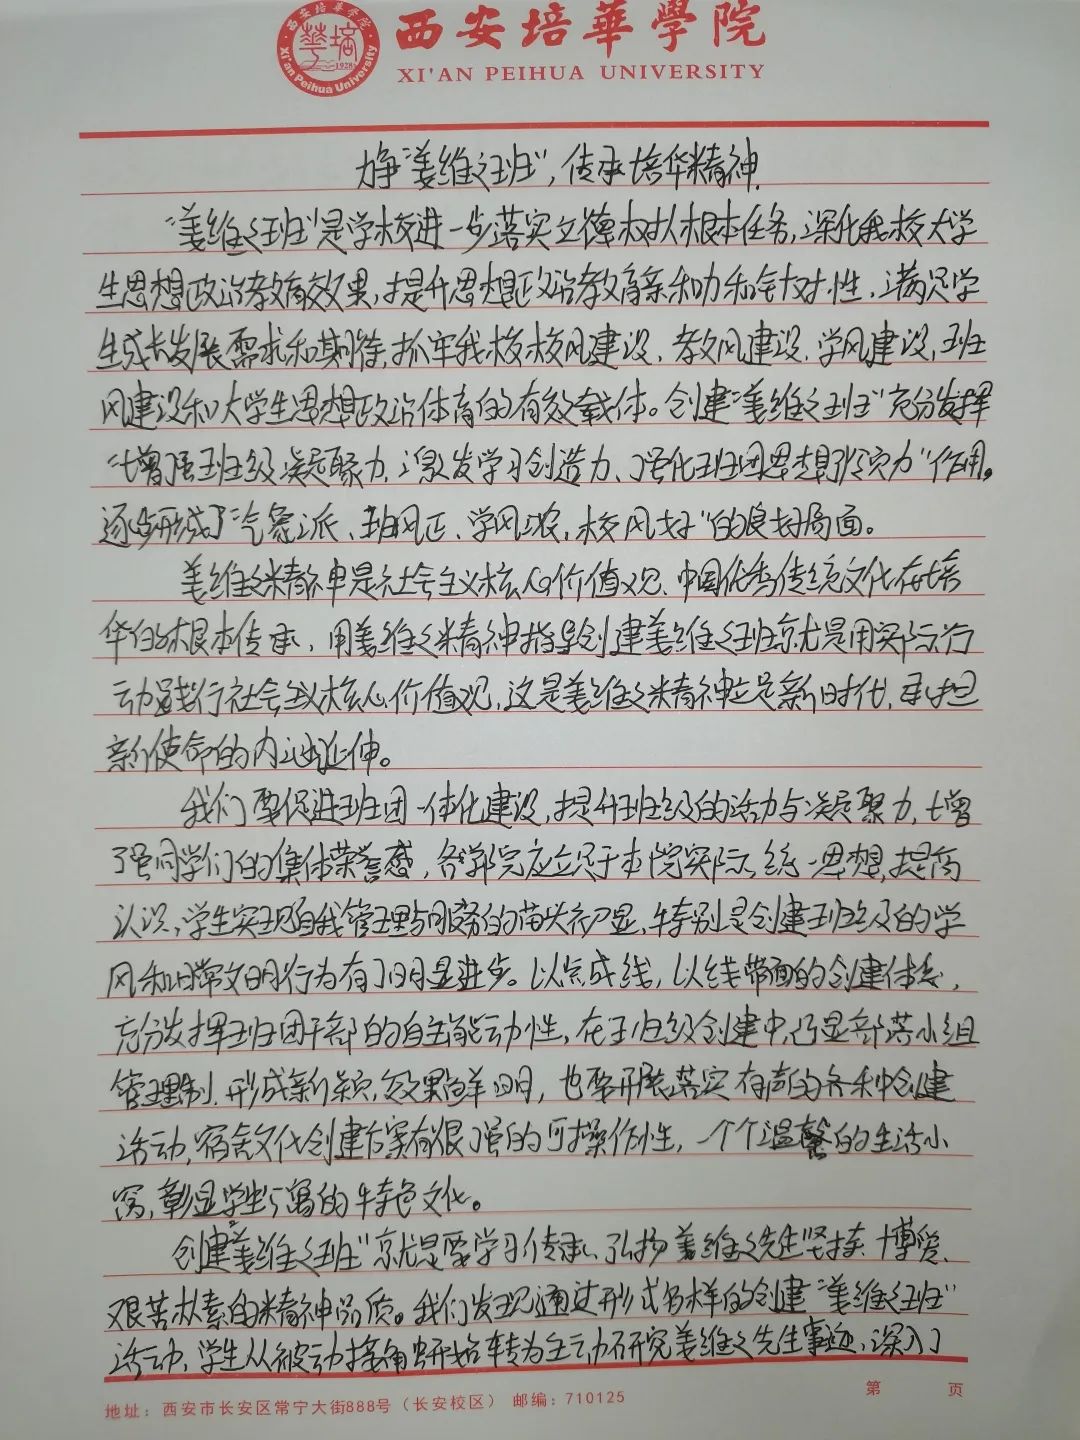 西安培華學院
XI'AN PEIHUA UNIVERSITY
西安培華学院
華培
1928
Xi'an Peihua University
力争“姜维之班”，传承培华精神.
“姜维之班”是学校进一步落实立德树人根本任务，深化我校大学
生思想政治教育效果，提升思想政治教育亲和力和针对性，满足学
生成长发展需求和期待，抓牢我校校风建设、教风建设、学风建设，班
风建设和大学生思想政治体育的有效载体。创建“姜维之班”充分发挥
“增强班级凝聚力、激发学习创造力、强化班团思想引领力”作用。
逐步形成了“气象派、班风正、学风浓，校风好”的良好局面。
姜维之精神是社会主义核心价值观、中国优秀传统文化在培
华的根本传承，用姜维之精神指导创建姜维之班就是用实际行
动践行社会主义核心价值观，这是姜维之精神立足新时代，承担
新使命的内涵延伸。
我们要促进班团一体化建设，提升班级的活力与凝聚力，增
强同学们的集体荣誉感，各学院应立足于本院实际，统一思想，提高
认识，学生实现自我管理与服务的苗头初显，特别是创建班级的学
风和日常文明行为有了明显进步。以点成线，以线带面的创建体系，
充分发挥班团干部的自主能动性，在班级创建中凸显部落小组
管理制，形成新颖，效果鲜明，也要开展落实有声的各种创建
活动，宿舍文化创建方案有很强的可操作性，一个个温馨的生活小
窝，彰显学生公寓的特色文化。
创建“姜维之班”就是要学习传承、弘扬姜维之先生坚持、博爱、
艰苦朴素的精神品质。我们发现通过形式多样的创建“姜维之班”
活动，学生从被动接角虫开始转为主动研究姜维之先生事迹，深入了
第 页
地址：西安市长安区常宁大街888号（长安校区） 邮编：710125